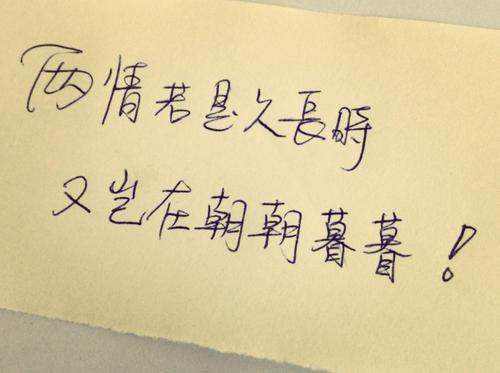 两情若是久長時
又岂在朝朝暮暮!